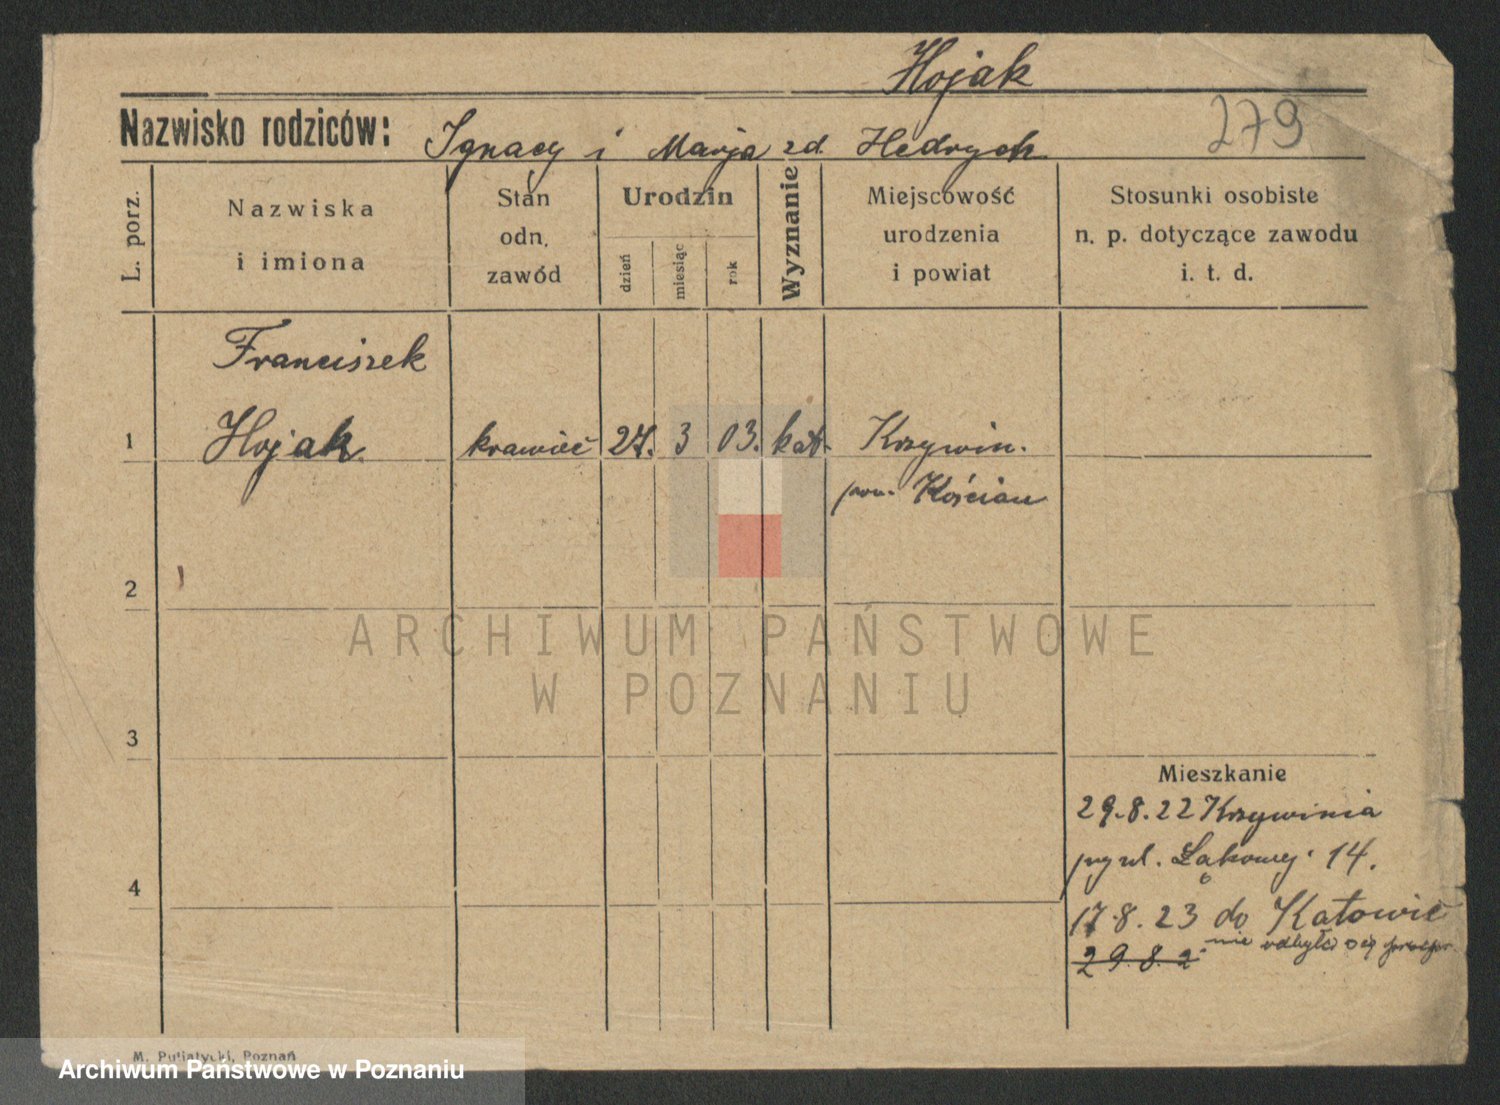 Hojak
Nazwisko rodziców: Ignacy i Marja zd. Hedrych
279
L. porz.
Nazwiska
i imiona
Stan
odn.
zawód
Urodzin
dzień
miesiąc
rok
Wyznanie
Miejscowość
urodzenia
i powiat
Stosunki osobiste
n. p. dotyczące zawodu
i. t. d.
Franciszek
1 Hojak krawiec 27. 3 03. kat. Krzywin.
pow. Kościan
2
3
4
Mieszkanie
29.8.22 Krzywinia
przy ul. Łąkowej 14.
17.8.23 do Katowic
nie odbyła się
29.8.2
ARCHIWUM PAŃSTWOWE
W POZNANIU
M. Putiatycki, Poznań
Archiwum Państwowe w Poznaniu